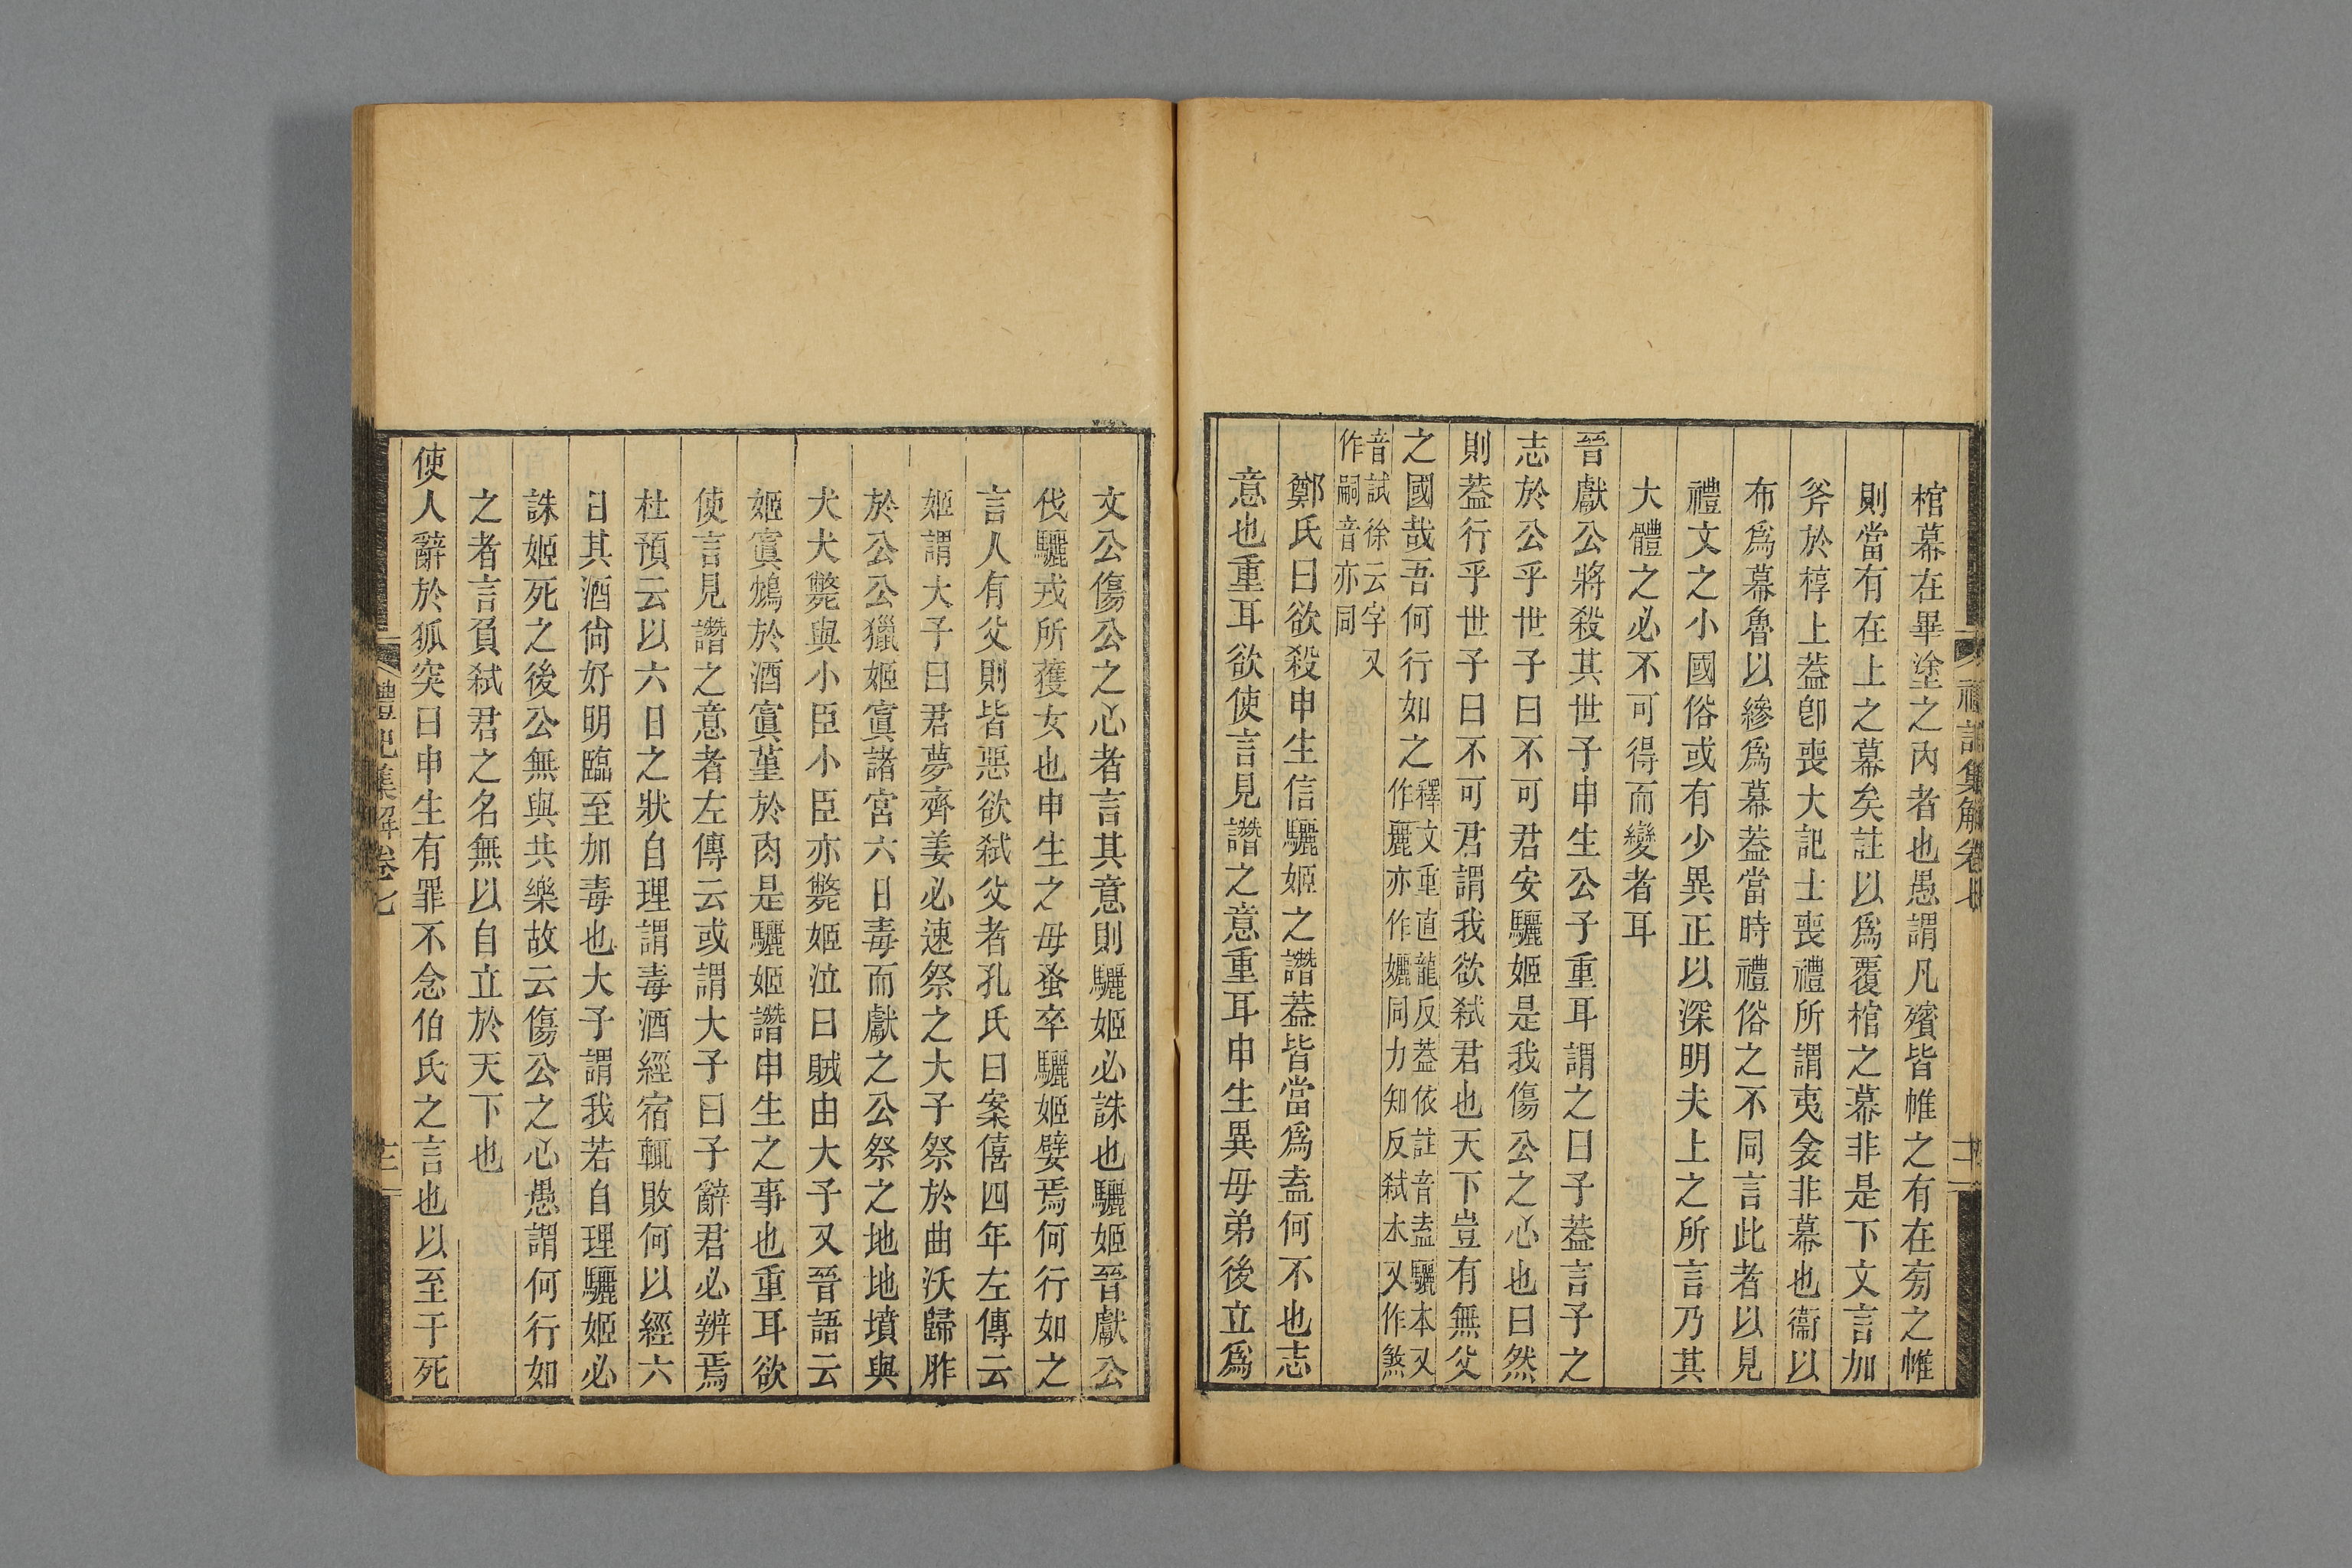 棺幕在畢塗之內者也愚謂凡殯皆帷之有在旁之帷
則當有在上之幕矣註以爲覆棺之幕非是下文言加
斧於椁上葢卽喪大記士喪禮所謂夷衾非幕也衞以
布爲幕魯以縿爲幕葢當時禮俗之不同言此者以見
禮文之小國俗或有少異正以深明夫上之所言乃其
大體之必不可得而變者耳
晉獻公將殺其世子申生公子重耳謂之曰子葢言子之
志於公乎世子曰不可君安驪姬是我傷公之心也曰然
則葢行乎世子曰不可君謂我欲弑君也天下豈有無父
之國哉吾何行如之釋文重直龍反葢依註音盍驪本又作麗亦作孋同力知反弑本又作煞
音試徐云字又作嗣音亦同
鄭氏曰欲殺申生信驪姬之譖葢皆當爲盍何不也志
意也重耳欲使言見譖之意重耳申生異母弟後立爲
文公傷公之心者言其意則驪姬必誅也驪姬晉獻公
伐驪戎所獲女也申生之母蚤卒驪姬嬖焉何行如之
言人有父則皆惡欲弑父者孔氏曰案僖四年左傳云
姬謂大子曰君夢齊姜必速祭之大子祭於曲沃歸胙
於公公獵姬寘諸宮六日毒而獻之公祭之地地墳與
犬犬斃與小臣小臣亦斃姬泣曰賊由大子又晉語云
姬寘鴆於酒寘堇於肉是驪姬譖申生之事也重耳欲
使言見譖之意者左傳云或謂大子曰子辭君必辨焉
杜預云以六日之狀自理謂毒酒經宿輒敗何以經六
日其酒尙好明臨至加毒也大子謂我若自理驪姬必
誅姬死之後公無與共樂故云傷公之心愚謂何行如
之者言負弑君之名無以自立於天下也
使人辭於狐突曰申生有罪不念伯氏之言也以至于死
禮記集解卷七